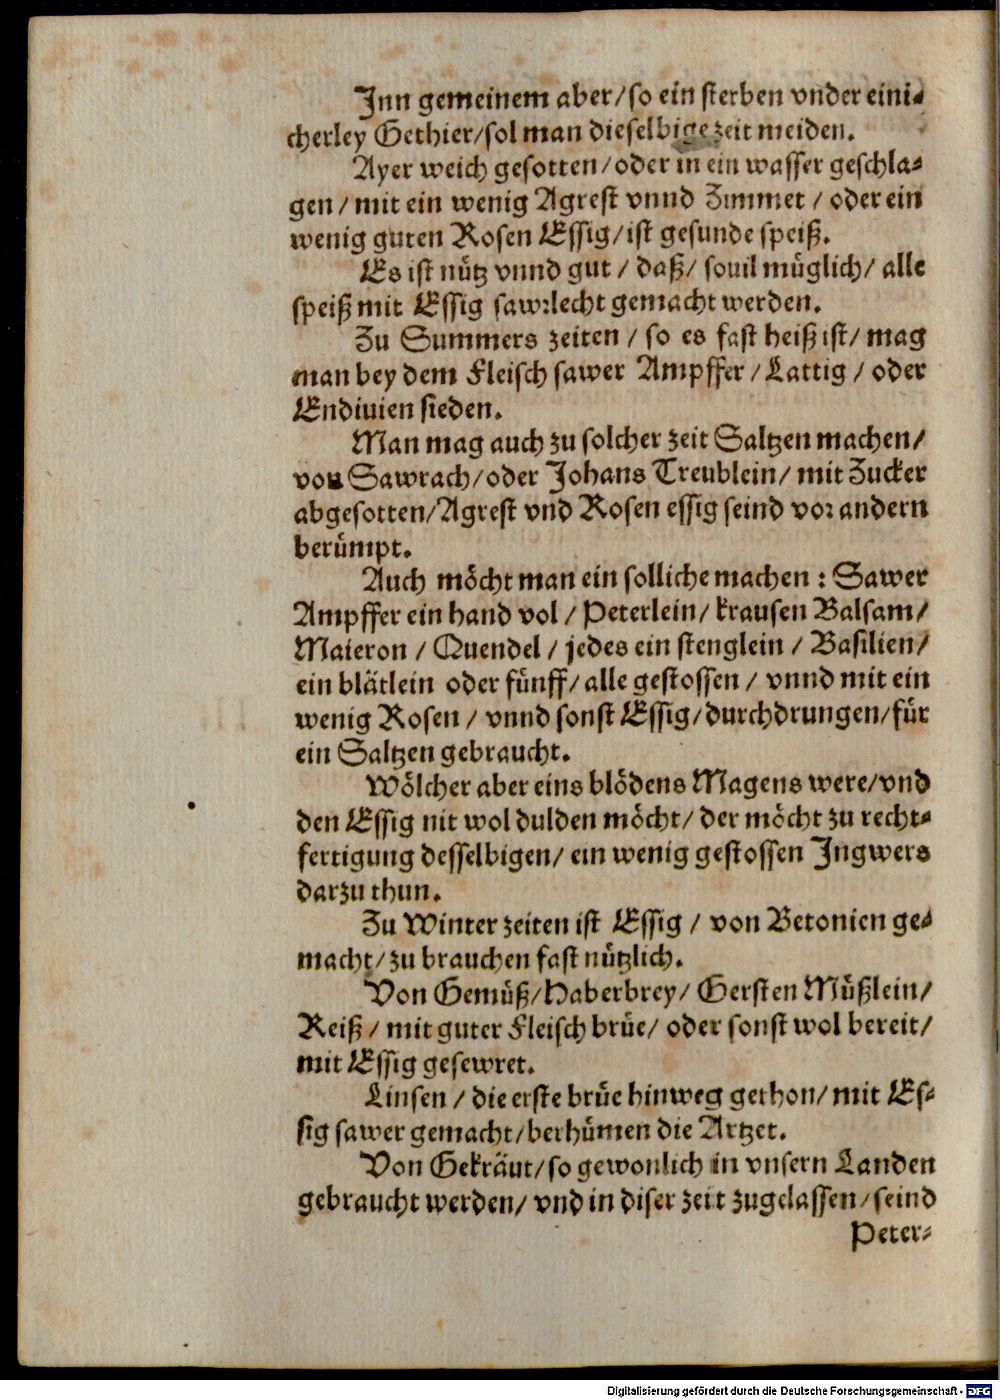 Jnn gemeinem aber/so ein sterben vnder eini⸗
cherley Gethier/sol man dieselbige zeit meiden.
Ayer weich gesotten/oder in ein wasser geschla⸗
gen/mit ein wenig Agrest vnnd Zimmet/oder ein
wenig guten Rosen Essig/ist gesunde speiß.
Es ist nütz vnnd gut/daß/souil müglich/alle
speiß mit Essig sawrlecht gemacht werden.
Zu Summers zeiten/so es fast heiß ist/mag
man bey dem Fleisch sawer Ampffer/Lattig/oder
Endiuien sieden.
Man mag auch zu solcher zeit Saltzen machen/
von Sawrach/oder Johans Treublein/mit Zucker
abgesotten/Agrest vnd Rosen essig seind vor andern
berümpt.
Auch möcht man ein solliche machen: Sawer
Ampffer ein hand vol/Peterlein/krausen Balsam/
Maieron/Quendel/jedes ein stenglein/Basilien/
ein blätlein oder fünff/alle gestossen/vnnd mit ein
wenig Rosen/vnnd sonst Essig/durchdrungen/für
ein Saltzen gebraucht.
Wölcher aber eins blödens Magens were/vnd
den Essig nit wol dulden möcht/der möcht zu recht⸗
fertigung desselbigen/ein wenig gestossen Jngwers
darzu thun.
Zu Winter zeiten ist Essig/von Betonien ge⸗
macht/zu brauchen fast nützlich.
Von Gemüß/Haberbrey/Gersten Müßlein/
Reiß/mit guter Fleisch brüe/oder sonst wol bereit/
mit Essig gesewret.
Linsen/die erste brüe hinweg gethon/mit Es⸗
sig sawer gemacht/berhümen die Artzet.
Von Gekräut/so gewonlich in vnsern Landen
gebraucht werden/vnd in diser zeit zugelassen/seind
Peter⸗
Digitalisierung gefördert durch die Deutsche Forschungsgemeinschaft - DFG